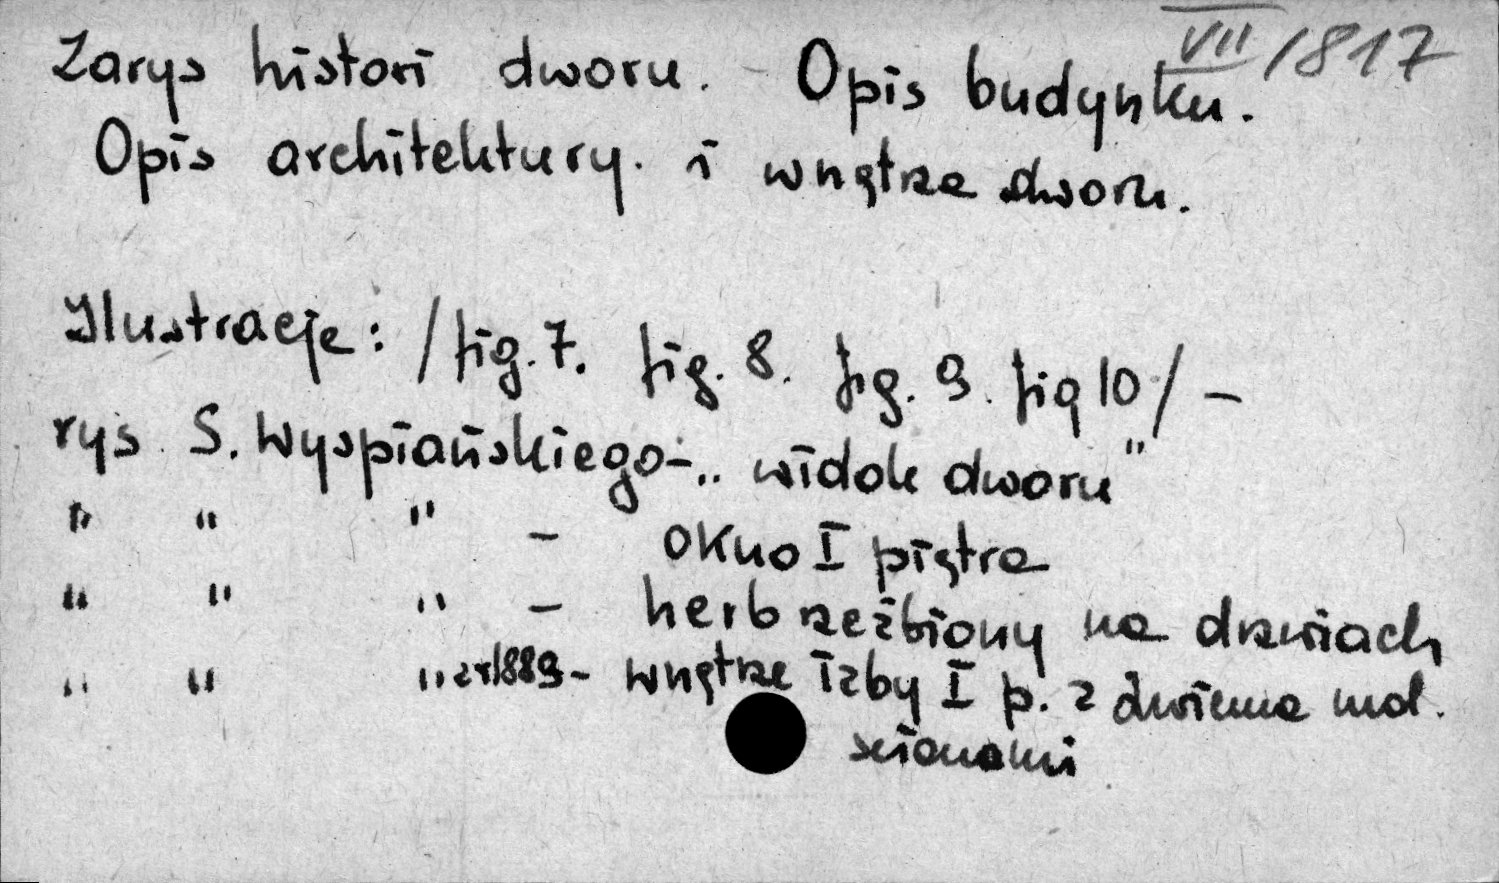 VII/1817
Zarys histori dworu. - Opis budynku.
Opis architektury. i wnętrze dworu.
Ilustracje: /fig. 7. fig. 8. fig. 9. fig 10/ -
rys. S. Wyspiańskiego - „widok dworu"
" " " - okno I piętra
" " " - herb rzeźbiony na drzwiach
" " " z r 1889 - wnętrze izby I p. z dwiema mal.
scianami